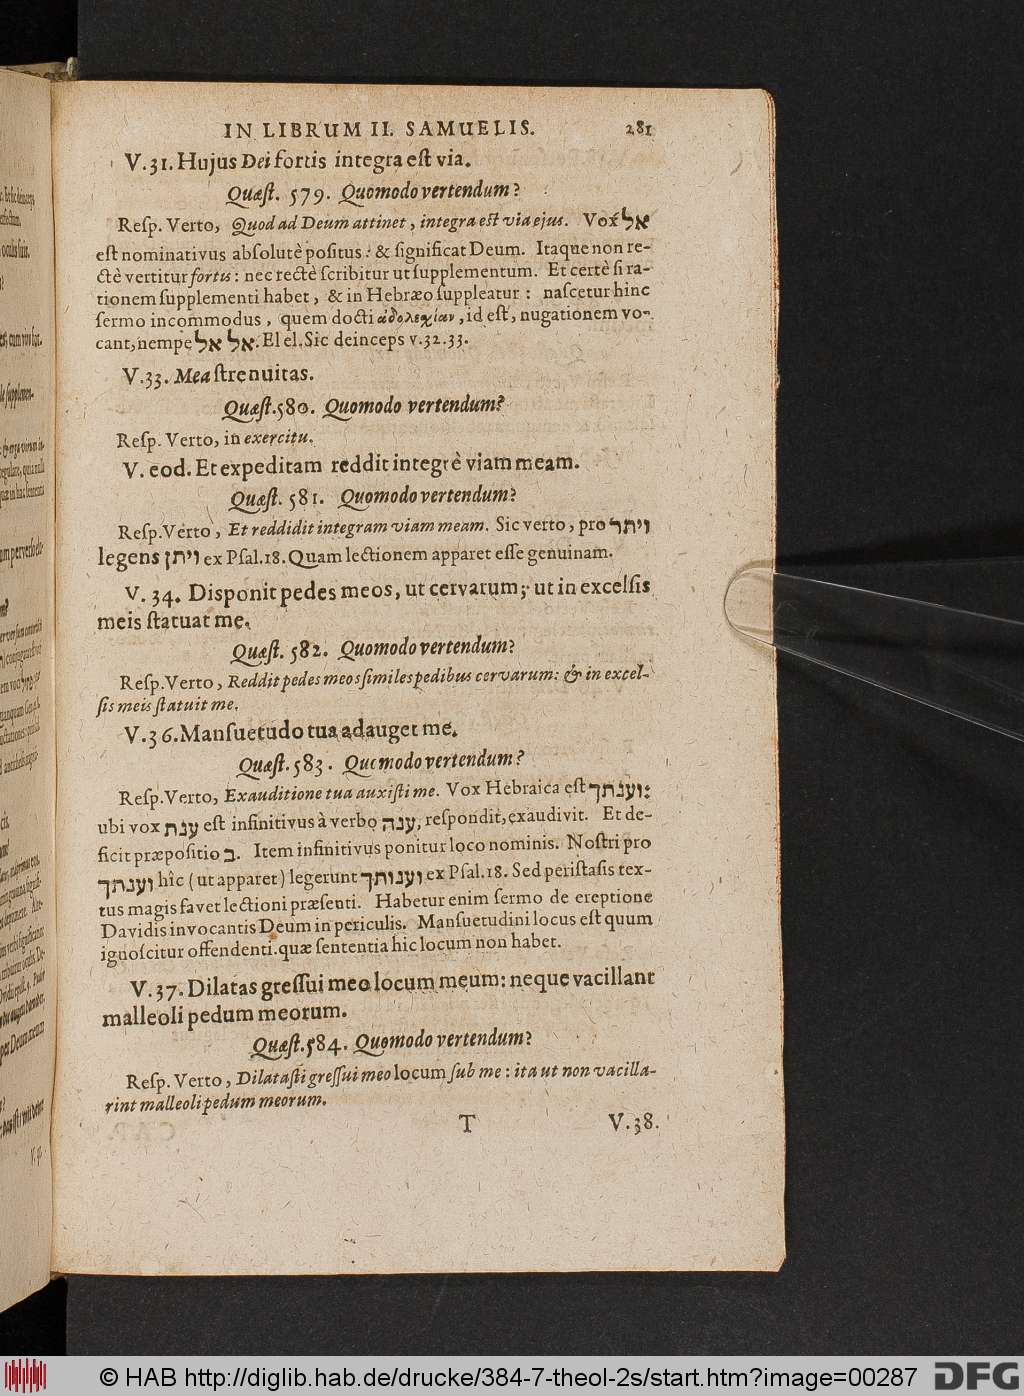 IN LIBRUM II. SAMUELIS. 281
V.31. Hujus Dei fortis integra eſt via.
Quæſt. 579. Quomodo vertendum?
Reſp. Verto, Quod ad Deum attinet, integra est via ejus. Vox אל
eſt nominativus abſolutè poſitus: & ſignificat Deum. Itaque non re-
ctè vertitur fortis: nec rectè ſcribitur ut ſupplementum. Et certè ſi ra-
tionem ſupplementi habet, & in Hebræo ſuppleatur: naſcetur hinc
ſermo incommodus, quem docti ἀδολεχίαν, id eſt, nugationem vo-
cant, nempe אל אל. El el. Sic deinceps v.32.33.
V.33. Mea ſtrenuitas.
Quæſt. 580. Quomodo vertendum?
Reſp. Verto, in exercitu.
V. eod. Et expeditam reddit integrè viam meam.
Quæſt. 581. Quomodo vertendum?
Reſp. Verto, Et reddidit integram viam meam. Sic verto, pro ויתר
legens ויתן ex Pſal.18. Quam lectionem apparet eſſe genuinam.
V. 34. Disponit pedes meos, ut cervarum; ut in excelſis
meis ſtatuat me.
Quæſt. 582. Quomodo vertendum?
Reſp. Verto, Reddit pedes meos ſimiles pedibus cervarum: & in excel-
ſis meis ſtatuit me.
V.36. Manſuetudo tua adauget me.
Quæſt. 583. Quomodo vertendum?
Reſp. Verto, Exauditione tua auxiſti me. Vox Hebraica eſt וענתך:
ubi vox ענת eſt infinitivus à verbo ענה, reſpondit, exaudivit. Et de-
ficit præpoſitio ב. Item infinitivus ponitur loco nominis. Noſtri pro
וענתך hîc (ut apparet) legerunt וענותך ex Pſal.18. Sed periſtaſis tex-
tus magis favet lectioni præſenti. Habetur enim ſermo de ereptione
Davidis invocantis Deum in periculis. Manſuetudini locus eſt quum
ignoſcitur offendenti. quæ ſententia hic locum non habet.
V.37. Dilatas greſſui meo locum meum: neque vacillant
malleoli pedum meorum.
Quæſt. 584. Quomodo vertendum?
Reſp. Verto, Dilataſti greſſui meo locum ſub me: ita ut non vacilla-
rint malleoli pedum meorum.
T V.38.
© HAB http://diglib.hab.de/drucke/384-7-theol-2s/start.htm?image=00287 DFG